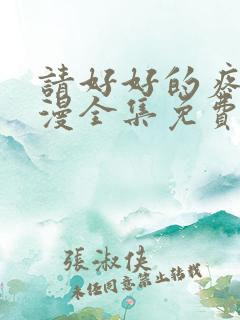 請好好的疼
漫全集免費
張淑俠
未經同意禁止轉載